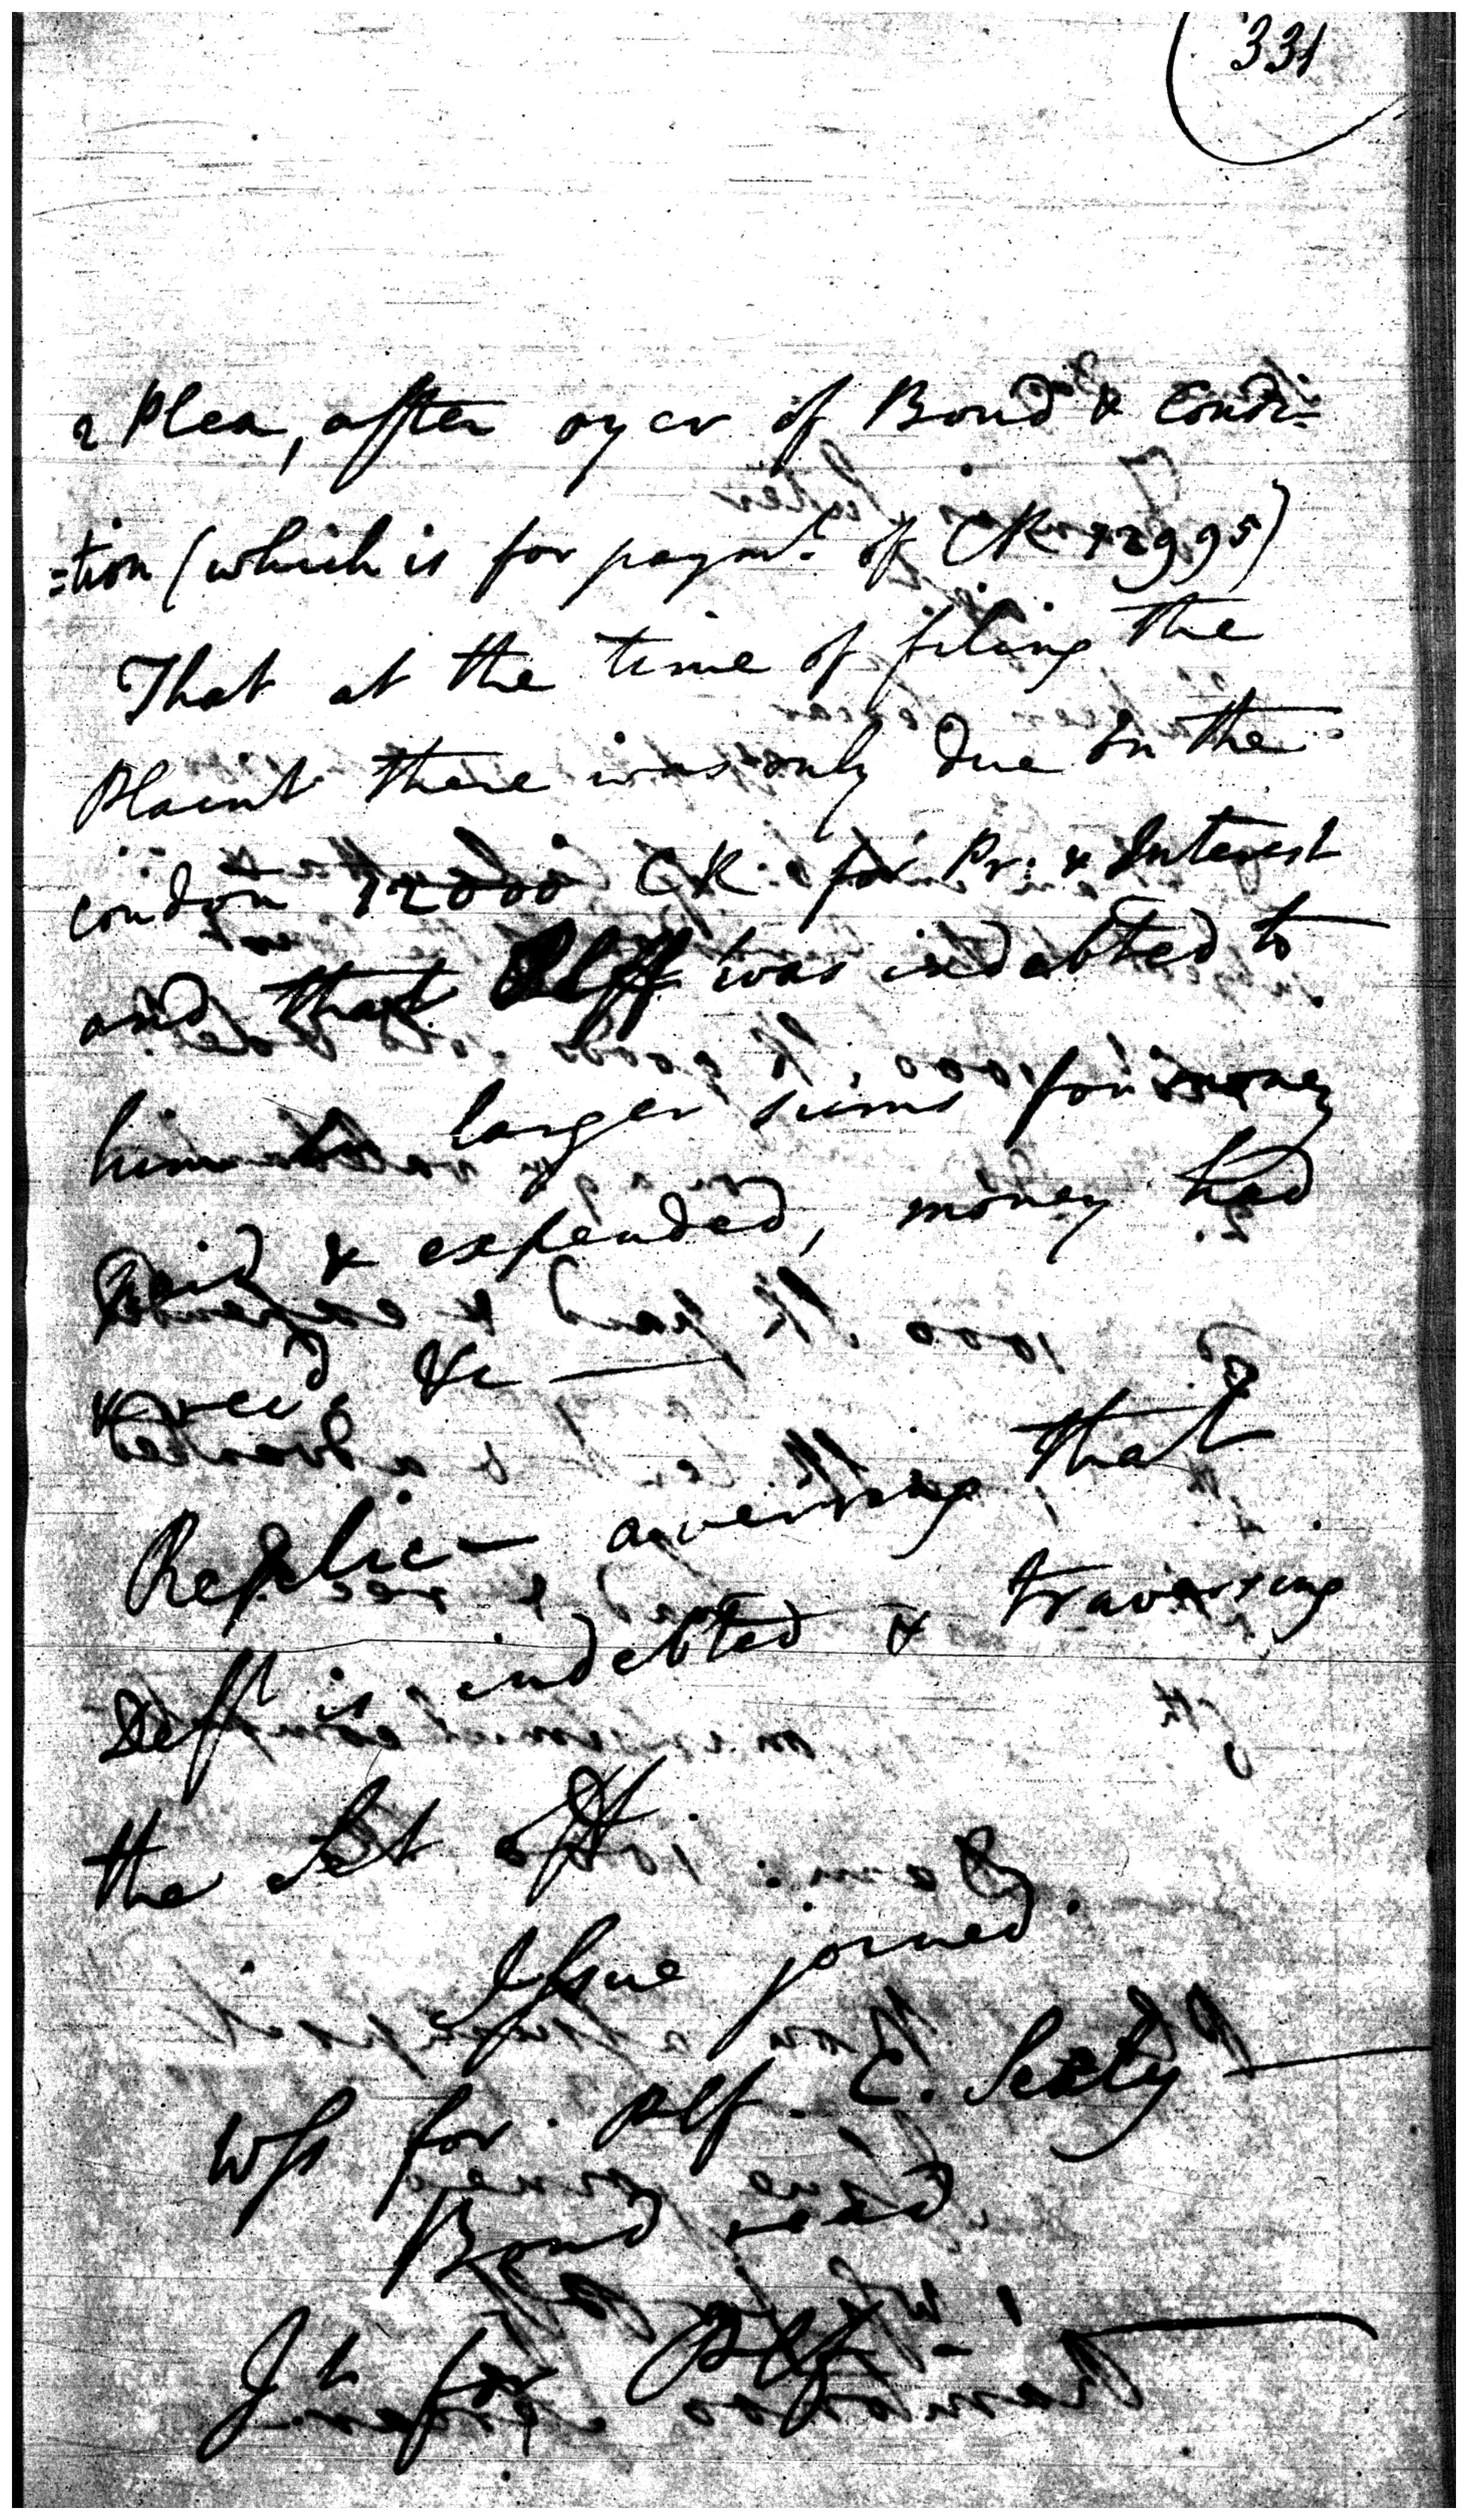 331
2 Plea, after oyer of Bond & Condi-
=tion (which is for paymt. of CR 12995)
That at the time of filing the
Plaint there was only due on the
condon 12000 CR for Pr: & Interest
and that Plff was indebted to
him in larger sums for money
paid & expended, money had
& recd. &c —
Replic— averring that
Deft is indebted & traversing
the Set off
Issue joined.
Wss for Plf. C. Sealy —
Bond read.
Jt. for Plf —